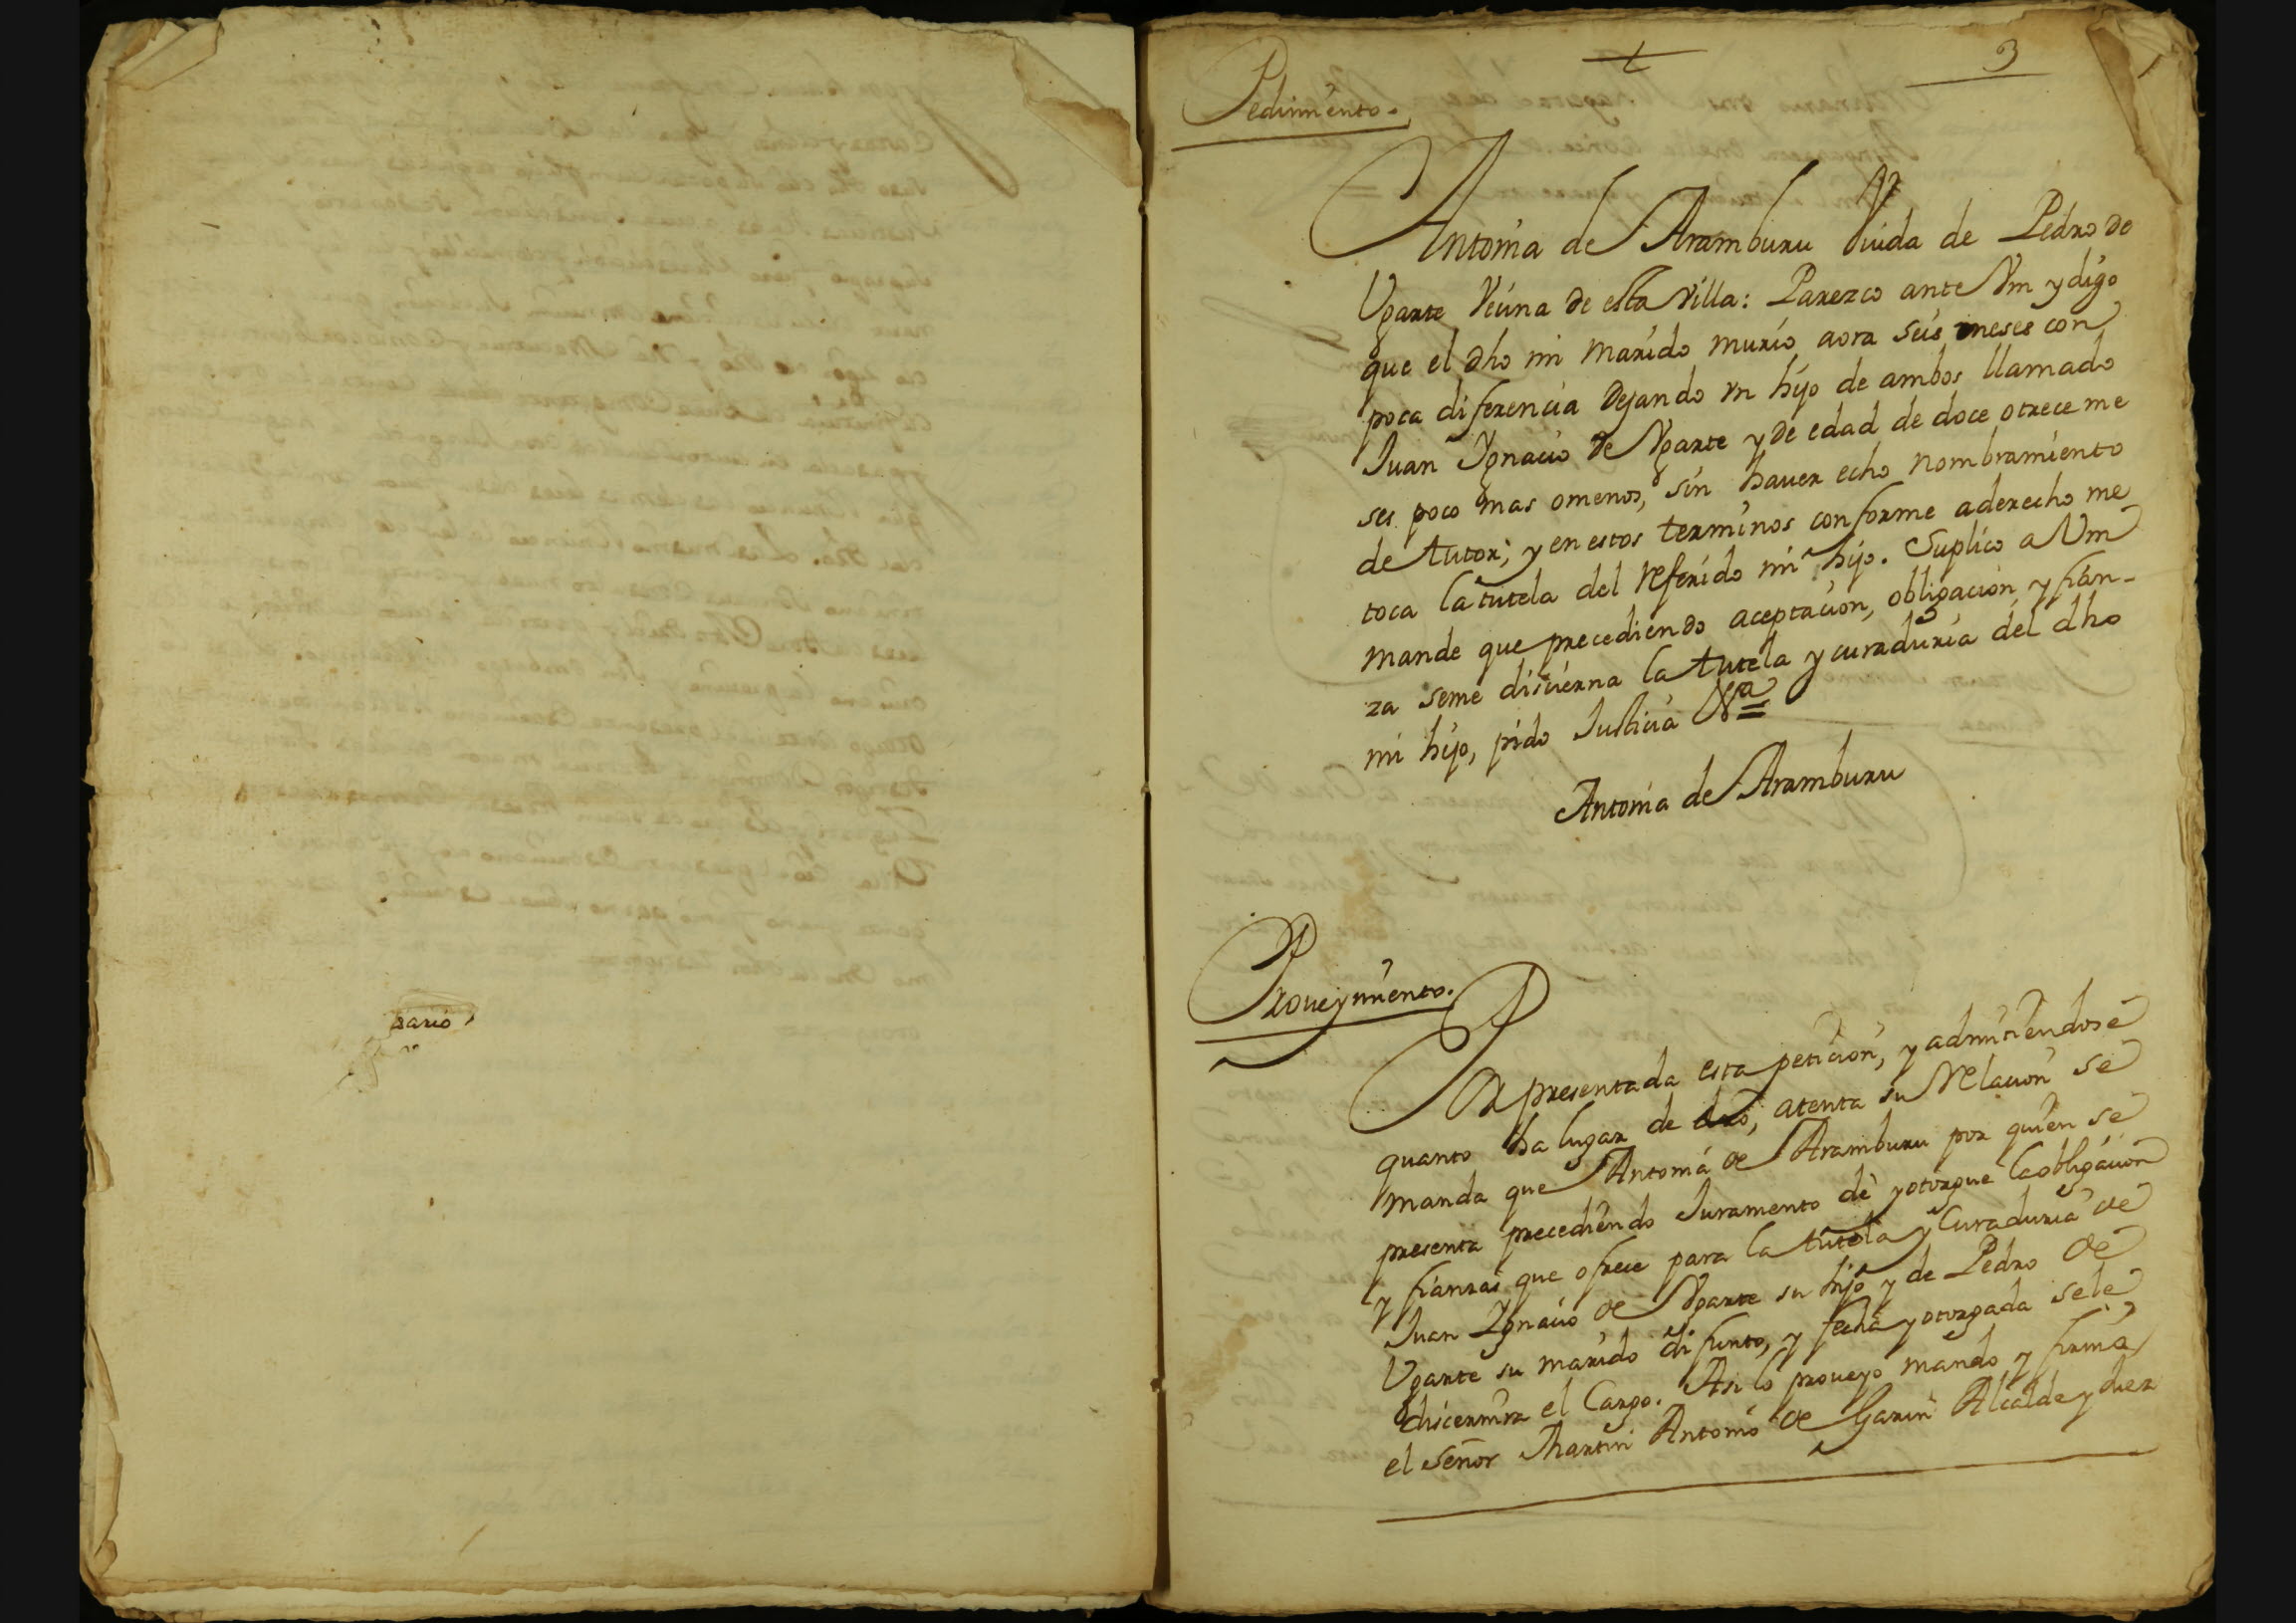 3
Pedimiento.
Antonia de Aramburu Viuda de Pedro de
Vgarte Veçina de esta Villa: Parezco ante Vm y digo
que el dho mi marido murio aora seis meses con
poca diferencia dejando vn hijo de ambos llamado
Juan Ygnacio de Vgarte y de edad de doce otrece me
ses poco mas omenos, sin hauer echo nombramiento
de tutor; y en estos terminos conforme aderecho me
toca la tutela del referido mi hijo. Suplico a Vm
mande que precediendo aceptacion, obligacion y fian-
za seme discierna la tutela y curaduria del dho
mi hijo, pido Justicia Va
Antonia de Aramburu
Proueymiento.
Por presentada esta peticion, y admitiendose
quanto ha lugar de dro, atenta su Relacion se
manda que Antonia de Aramburu por quien se
presenta precediendo Juramento de yotorgue la obligacion
y fianzas que ofrece para la tutela y Curaduria de
Juan Ygnacio de Vgarte su hijo y de Pedro de
Vgarte su marido difunto, y fecha y otorgada sele
discernira el Cargo. Asi lo proueyo mando y firmó
el señor Martin Antonio de Garin Alcalde y Juez